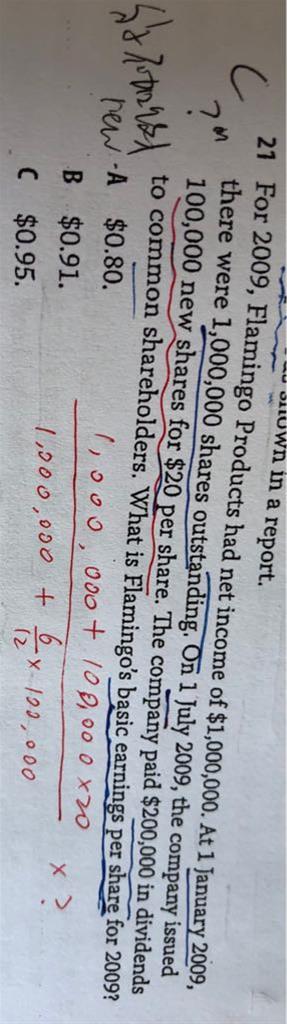 shown in a report.
21 For 2009, Flamingo Products had net income of $1,000,000. At 1 January 2009,
there were 1,000,000 shares outstanding. On 1 July 2009, the company issued
100,000 new shares for $20 per share. The company paid $200,000 in dividends
to common shareholders. What is Flamingo's basic earnings per share for 2009?
new - A $0.80.
B $0.91.
C $0.95.
C
1,000,000 + 100,000 x 20
1,000,000 + 6/12 x 100,000
x ?